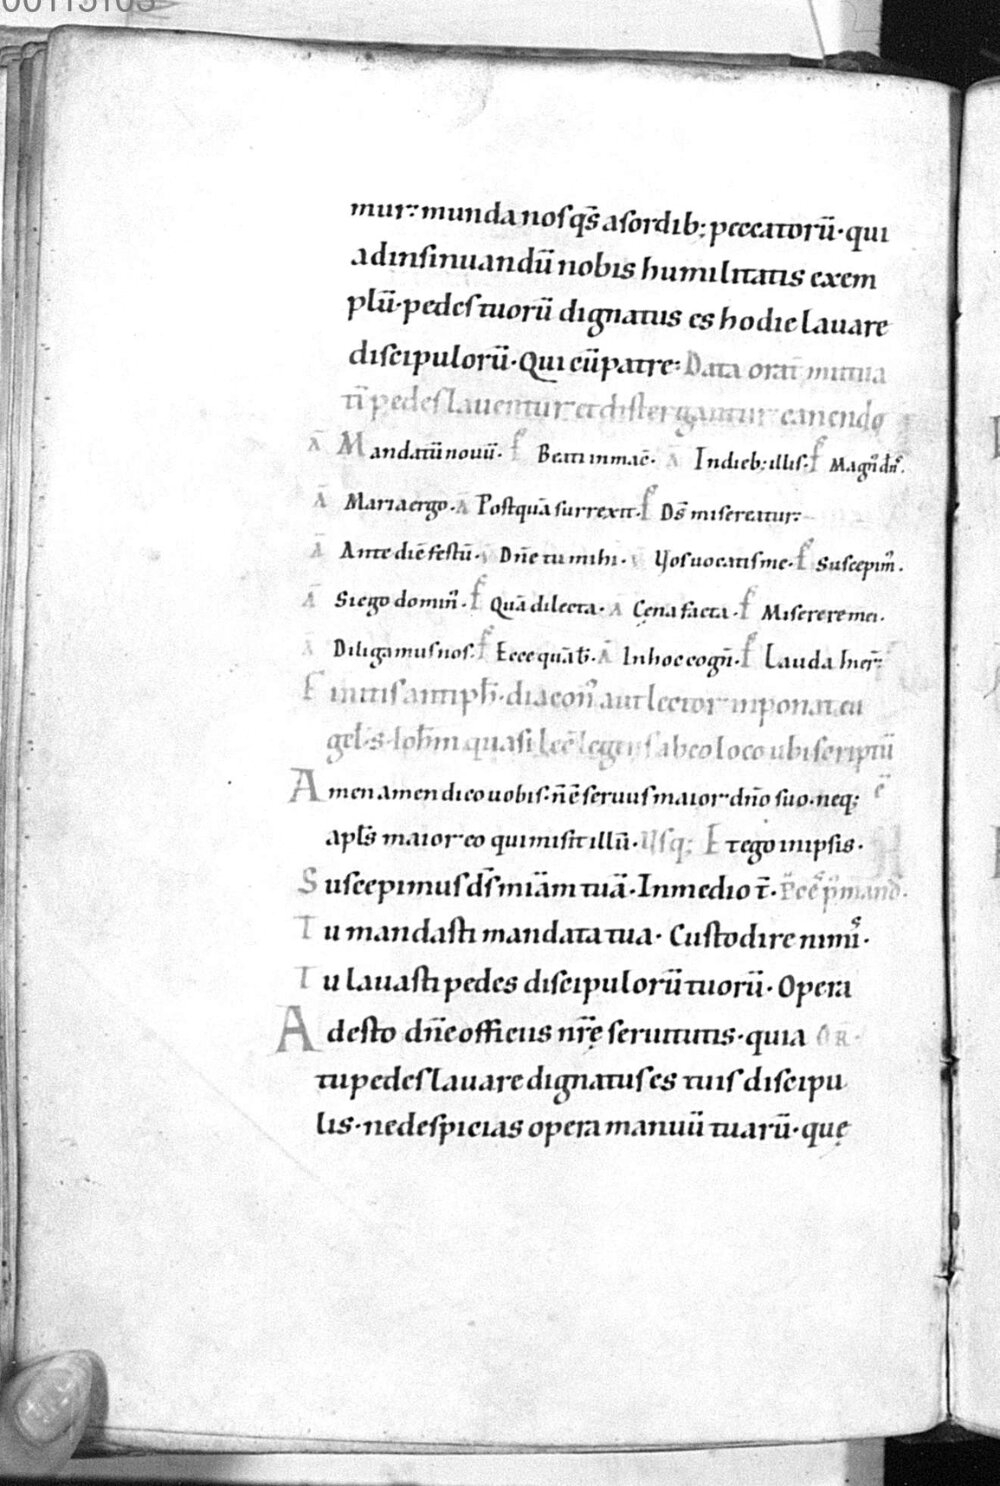 mur: munda nos q̄s a sordib; peccatorū· qui
ad insinuandū nobis humilitatis exem
plū· pedes tuorū dignatus es hodie lavare
discipulorū· Qui cū patre: Data orat̄ mutua
ti pedes lauentur et disterguntur canendo
Ā Mandatū nouū· ꝑs Beati inmac̄· Ā In dieb; illis· ꝑs Magn̄ dn̄s·
Ā Maria ergo· Ā Postquā surrexit· ꝑs Ds̄ misereatur:
Ā Ante diē festū· Dn̄e tu mihi· Vos uocatis me· ꝑs Suscepim̄·
Ā Si ego domin̄· ꝑs Quā dilecta· Ā Cena facta· ꝑs Miserere mei·
Ā Diligamus nos· ꝑs Ecce quā b̄· Ā In hoc cogn̄· ꝑs Lauda hier̄:
Finitis antiph̄· diacon̄ aut lector inponat eu
gel̄· s· Ioh̄m quasi lec̄ legens ab eo loco ubi scriptū
Amen amen dico uobis· n̄ ē seruus maior dn̄o suo· neq; ē
apl̄s maior eo qui misit illū· Usq; Et ego in ipsis·
Suscepimus ds̄ miām tuā· In medio t̄·
Tu mandasti mandata tua· Custodire nimis·
Tu lauasti pedes discipulorū tuorū· Opera
Adesto dn̄e officiis nr̄ę seruitutis· quia OR̄·
tu pedes lauare dignatus es tuis discipu
lis· ne despicias opera manuū tuarū· quę